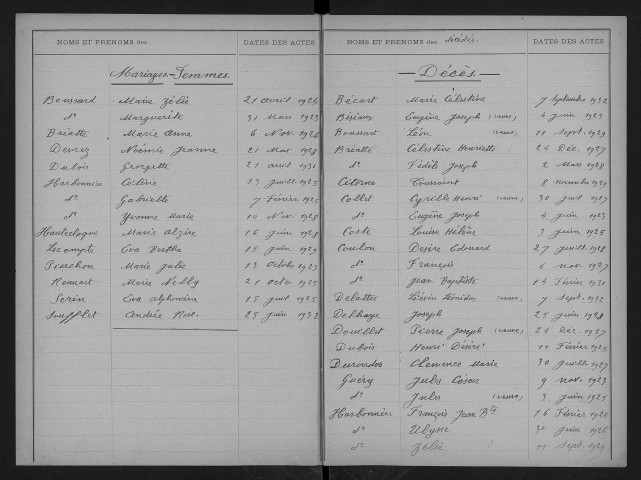 NOMS ET PRENOMS des
DATES DES ACTES
Mariages-Femmes.
Boussard Marie Zélie 21 avril 1926
d° Marguerite 31 Mars 1923
Baiatte Marie Anne 6 Nov. 1926
Devrez Noémie Jeanne 21 Mai 1928
Dubois Georgette 21 avril 1931
Harbonnier Célène 13 Juill 1925
d° Gabrielle 7 Février 1925
d° Yvonne Marie 10 Nov. 1928
Hautecloque Marie Alzire 16 Juin 1928
Lecompte Eva Berthe 15 Juin 1929
Pierchon Marie Julie 13 Octobre 1923
Renuart Marie Nelly 21 Octo 1925
Serin Eva Alphonsine 15 Juil 1925
Soufflet Andrée Rose. 25 Juin 1932
NOMS ET PRENOMS des Décédés.
DATES DES ACTES
Décès.
Bécart Marie Célestine 7 Septembre 1932
Eugène Joseph (veuve) 4 Juin 1923
Boussart Léon (veuve) 11 Sept. 1929
Briatte Célestine Henriette 24 Déc. 1927
d° Fidèle Joseph 2 Mars 1928
Citerne Toussaint 8 novembre 1929
Collet Cyrille Henri (veuve) 30 Juil 1927
d° Eugène Joseph 4 Juin 1923
Coste Louise Hélène 3 Juin 1925
Coulon Désiré Edouard 27 Juill. 1928
d° François 6 nov. 1927
d° Jean Baptiste 14 Février 1931
Delattes Léonidas (veuve) 7 Sept. 1932
Delhaye Joseph 25 Juin 1928
Douillet Pierre Joseph (veuve) 24 Déc. 1927
Dubois Henri Désiré 11 Février 1925
Clémence Marie 30 Juill 1927
Guéry Jules César 9 nov. 1923
d° Jules (veuve) 3 Juin 1925
Harbonnier François Jean Bte 16 Février 1926
d° Ulysse 30 Juin 1926
d° Zélie 11 Sept. 1929